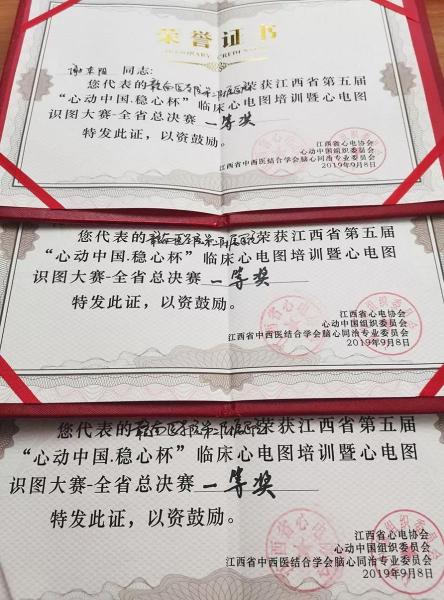 荣誉证书
同志:
您代表的赣南医学院第一附属医院荣获江西省第五届
“心动中国.稳心杯”临床心电图培训暨心电图
识图大赛-全省总决赛一等奖
特发此证,以资鼓励。
江西省心电协会
心动中国组织委员会
江西省中西医结合学会脑心同治专业委员会
2019年9月8日
您代表的赣南医学院第一附属医院荣获江西省第五届
“心动中国.稳心杯”临床心电图培训暨心电图
识图大赛-全省总决赛一等奖
特发此证,以资鼓励。
江西省心电协会
心动中国组织委员会
江西省中西医结合学会脑心同治专业委员会
2019年9月8日
您代表的赣南医学院第一附属医院荣获江西省第五届
“心动中国.稳心杯”临床心电图培训暨心电图
识图大赛-全省总决赛一等奖
特发此证,以资鼓励。
江西省心电协会
心动中国组织委员会
江西省中西医结合学会脑心同治专业委员会
2019年9月8日